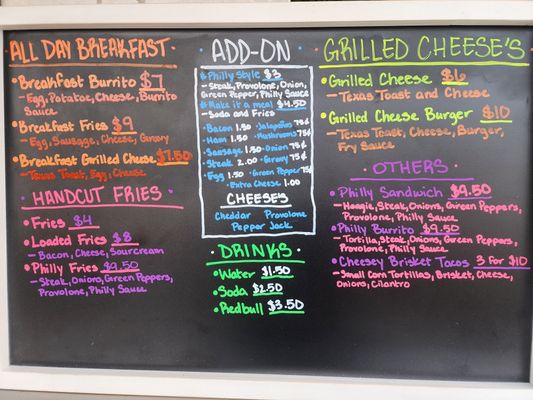 ALL DAY BREAKFAST
• Breakfast Burrito $7
- Egg, Potatoes, Cheese, Burrito
Sauce
• Breakfast Fries $9
- Egg, Sausage, Cheese, Gravy
• Breakfast Grilled Cheese $7.50
- Texas Toast, Egg, Cheese
HANDCUT FRIES
• Fries $4
• Loaded Fries $8
- Bacon, Cheese, Sourcream
• Philly Fries $9.50
- Steak, Onions, Green Peppers,
Provolone, Philly Sauce
ADD-ON
Philly Style $3
- Steak, Provolone, Onion,
Green Pepper, Philly Sauce
Make it a meal $4.50
- Soda and Fries
• Bacon 1.50 • Jalapeños 75¢
• Ham 1.50 • Mushrooms 75¢
• Sausage 1.50 • Onion 75¢
• Steak 2.00 • Gravy 75¢
• Egg 1.50 • Green Pepper 75¢
• Extra Cheese 1.00
CHEESE'S
Cheddar Provolone
Pepper Jack
• DRINKS •
• Water $1.50
• Soda $2.50
• Redbull $3.50
GRILLED CHEESE'S
• Grilled Cheese $6
- Texas Toast and Cheese
• Grilled Cheese Burger $10
- Texas Toast, Cheese, Burger,
Fry Sauce
• OTHERS •
• Philly Sandwich $9.50
- Hoagie, Steak, Onions, Green Peppers,
Provolone, Philly Sauce
• Philly Burrito $9.50
- Tortilla, Steak, Onions, Green Peppers,
Provolone, Philly Sauce
• Cheesey Brisket Tacos 3 For $10
- Small Corn Tortillas, Brisket, Cheese,
Onions, Cilantro